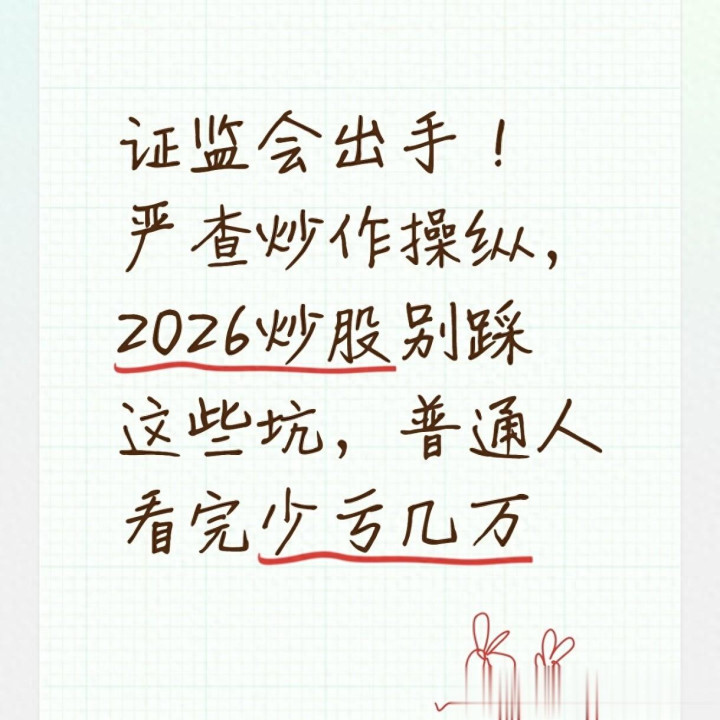 证监会出手！
严查炒作操纵，
2026炒股别踩
这些坑，普通人
看完少亏几万